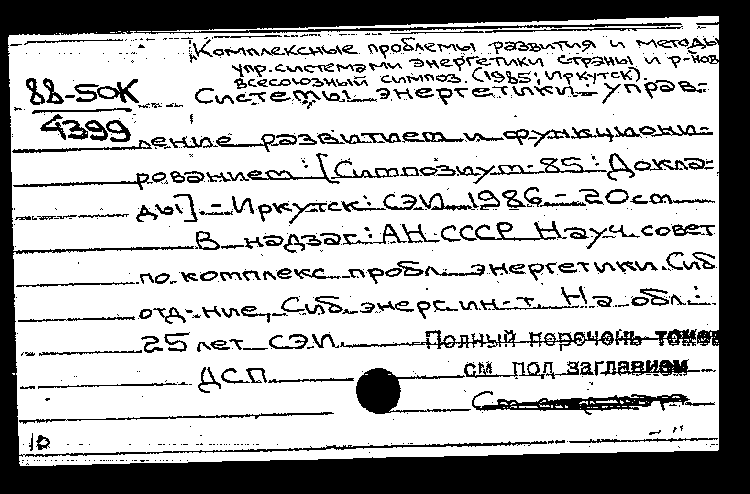 Комплексные проблемы развития и методы
упр. системами энергетики страны и р-нов
всесоюзный симпоз. (1985; Иркутск).
88-50К Системы энергетики - управ-
4399
ление развитием и функциони-
рованием: [Симпозиум-85: Докла-
ды]. - Иркутск: СЭИ, 1986. - 20 см
В надзаг.: АН СССР. Науч. совет
по комплекс. пробл. энергетики. Сиб.
отд-ние, Сиб. энерг. ин-т. На обл.:
25 лет СЭИ. Полный перечень томов
ДСП см под заглавием
10